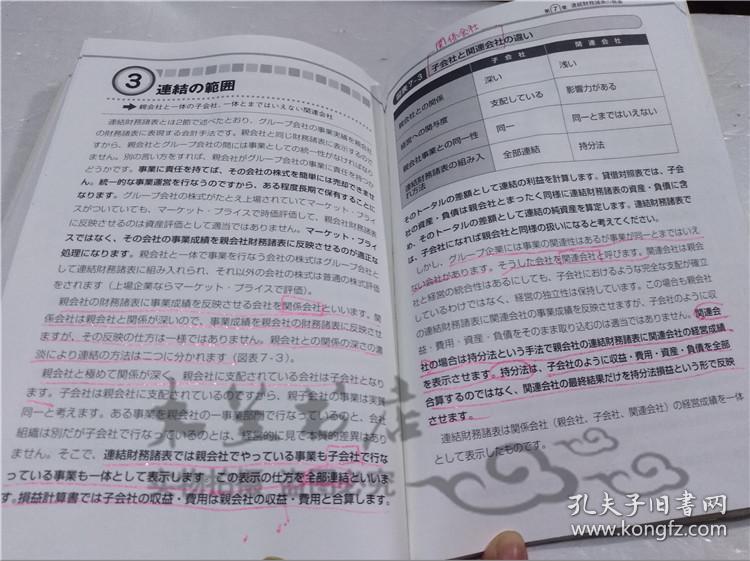 3 連結の範囲
親会社と一体の子会社、一体とまではいえない関連会社
連結財務諸表とは2節で述べたとおり、グループ会社の事業実績を親会社
の財務諸表に表現する会計手法です。親会社と同じ財務諸表に表示するので
すから、親会社とグループ会社の間には事業としての統一性がなければなり
ません。別の言い方をすれば、親会社がグループ会社の事業に責任を持つか
どうかです。事業に責任を持てば、その会社の株式を簡単には売却できませ
ん。統一的な事業運営を行なうのですから、ある程度長期で保有することに
なります。グループ会社の株式がたとえ上場されていてマーケット・プライ
スがついていても、マーケット・プライスで時価評価して、親会社財務諸表
に反映させるのは資産評価として適当ではありません。マーケット・プライ
スではなく、その会社の事業成績を親会社財務諸表に反映させるのが適正な
処理になります。親会社と一体で事業を行なう会社の株式はグループ会社と
して連結財務諸表に組み入れられ、それ以外の会社の株式は普通の株式評価
をされます（上場企業ならマーケット・プライスで評価）。
親会社の財務諸表に事業成績を反映させる会社を関係会社といいます。関
係会社は親会社と関係が深いので、事業成績を親会社の財務諸表に反映させ
ますが、その反映の仕方は一様ではありません。親会社との関係の深さの濃
淡により連結の方法は二つに分かれます（図表7-3）。
親会社と極めて関係が深く、親会社に支配されている会社は子会社となり
ます。子会社は親会社に支配されているのですから、親子会社の事業は実質
同一と考えます。ある事業を親会社の一事業部門で行なっているのと、会社
組織は別だが子会社で行なっているのとは、経営的に見て本質的差異はあり
ません。そこで、連結財務諸表では親会社でやっている事業も子会社で行な
っている事業も一体として表示します。この表示の仕方を全部連結といいま
す。損益計算書では子会社の収益・費用は親会社の収益・費用と合算します。
第7章 連結財務諸表の概要
関係会社
図表7-3 子会社と関連会社の違い
子会社 関連会社
親会社との関係 深い 浅い
経営への関与度 支配している 影響力がある
親会社事業との同一性 同一 同一とまではいえない
連結財務諸表の組み入れ方法 全部連結 持分法
そのトータルの差額として連結の利益を計算します。貸借対照表では、子会
社の資産・負債は親会社とまったく同様に連結財務諸表の資産・負債に含
め、そのトータルの差額として連結の純資産を算定します。連結財務諸表で
は、子会社になれば親会社と同様の扱いになると考えてください。
しかし、グループ企業には事業の関連性はあるが事業が同一とまではいえ
ない会社があります。そうした会社を関連会社と呼びます。関連会社は親会
社と経営の統合性はあるにしても、子会社におけるような完全な支配が確立
しているわけではなく、経営の独立性は保持しています。この場合も親会社
の連結財務諸表に関連会社の事業成績を反映させますが、子会社のように収
益・費用・資産・負債をそのまま取り込むのは適当ではありません。関連会
社の場合は持分法という手法で親会社の連結財務諸表に関連会社の経営成績
を表示させます。持分法は、子会社のように収益・費用・資産・負債を全部
合算するのではなく、関連会社の最終結果だけを持分法損益という形で反映
させます。
連結財務諸表は関係会社（親会社、子会社、関連会社）の経営成績を一体
として表示したものです。
孔夫子旧书网
www.kongfz.com